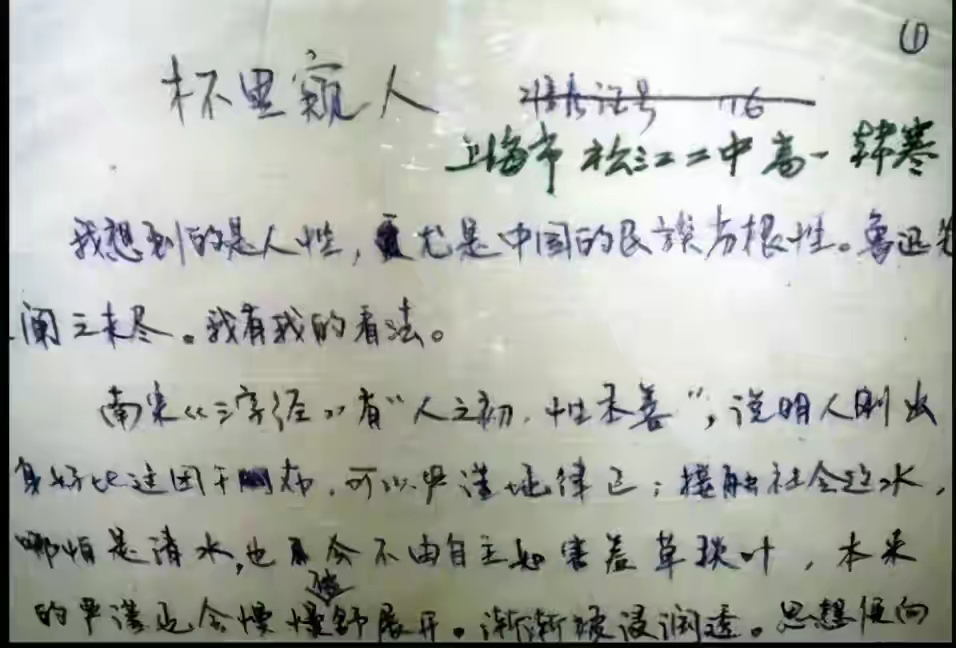 ①
杯里窥人 准考证号 16
上海市松江二中高一 韩寒
我想到的是人性，尤是中国的民族劣根性。鲁迅先
阐之未尽。我有我的看法。
南宋《三字经》有“人之初，性本善”，说明人刚出
身好比这团干布，可以严谨地律己；接触社会这水，
哪怕是清水，也会不由自主如害羞草叶，本来
的严谨也会慢慢被舒展开。渐渐被浸润透。思想便向